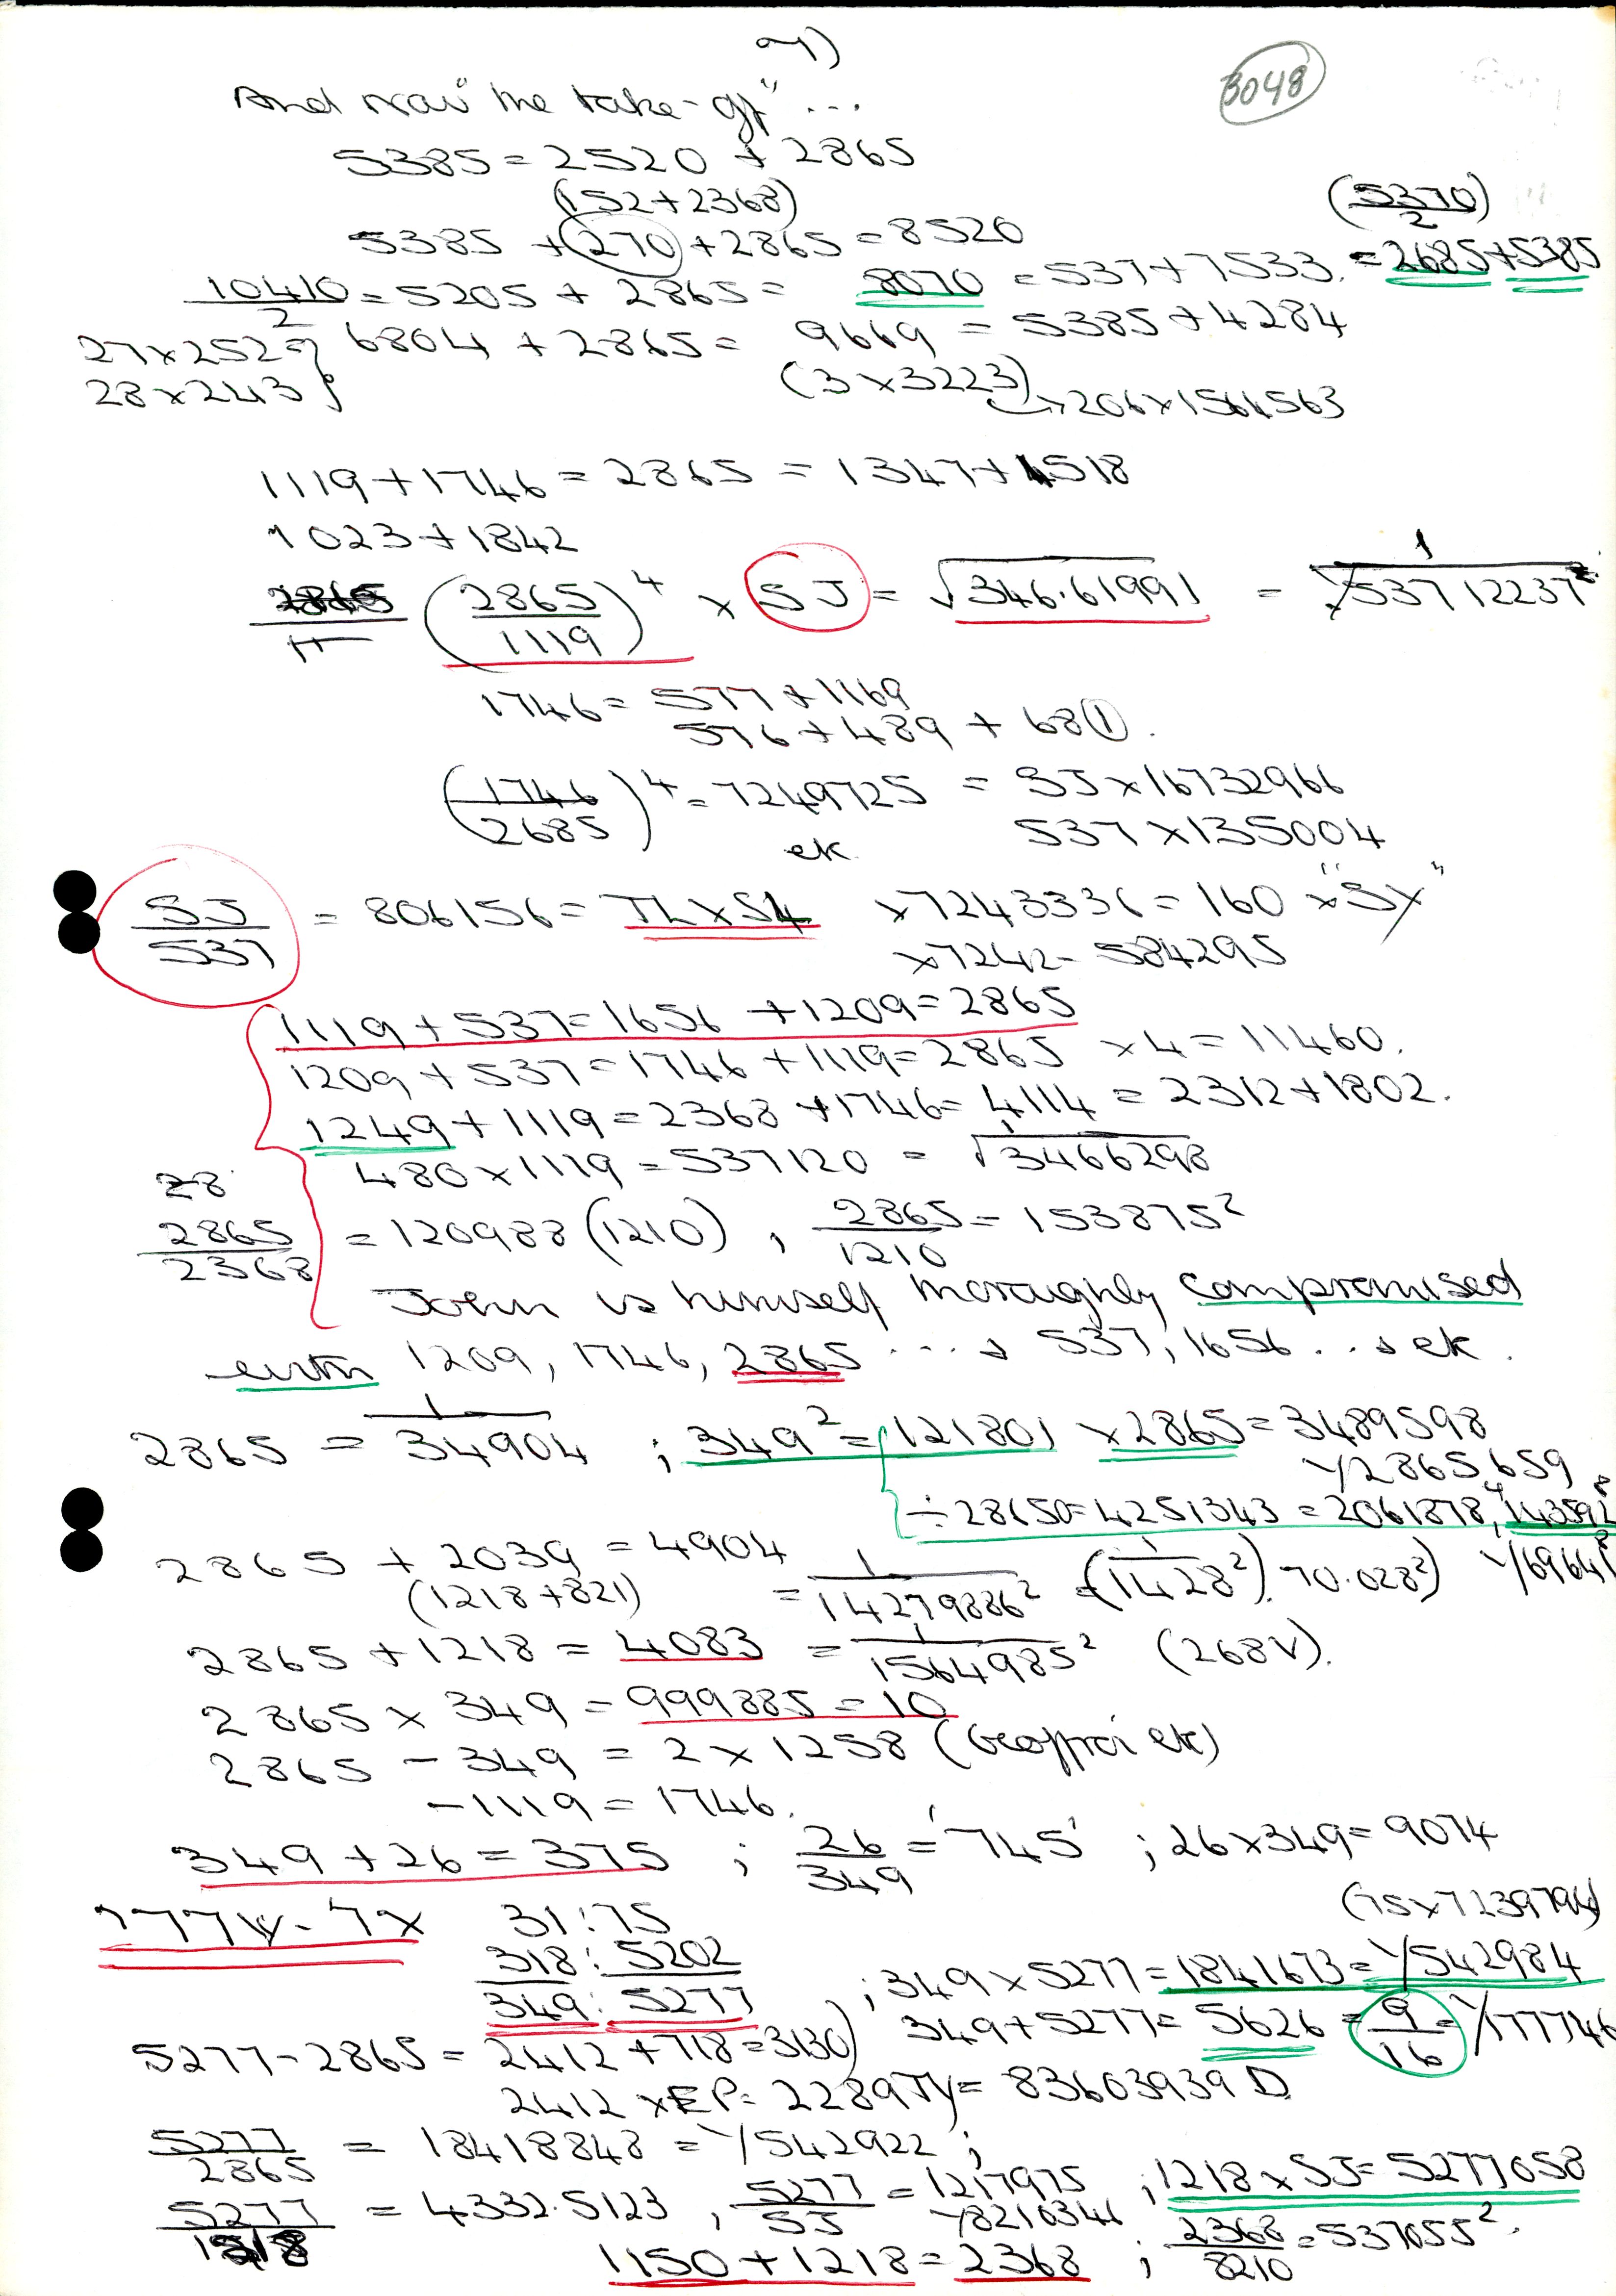 7)
3048
And now "the take-off" ...
5385 = 2520 + 2865
(152+2368)
5385 + 270 + 2865 = 8520
(5370/2)
10410/2 = 5205 + 2865 = 8070 = 537+7533. = 2685+5385
27×252 } 6804 + 2865 = 9669 = 5385+4284
28×243 } (3×3223) → 206×1564563
1119+1746 = 2865 = 1347+1518
1023+1842
(2865/1119)^4 × SJ = √346.61991 = 1/53712237²
1746 = 577+1169
576+489 + 681.
(1746/2685)^4 = 7249725 = SJ×16732966
ek. 537×135004
SJ/537 = 806156 = TL×S4 ×7243336 = 160 × "SY"
×7242 = 584295
1119+537=1656 +1209=2865
1209+537=1746+1119=2865 ×4=11460.
1249+1119=2368+1746=4114=2312+1802.
480×1119=537120 = √3466298
28
2865/2368 = 120988 (1210) , 2865/1210 = 153875²
John is himself thoroughly compromised
with 1209, 1746, 2865 ... → 537, 1656 ... → ek.
2865 = 1/34904 ; 349² = 121801 ×2865 = 3489598
1/2865659
÷28650=4251343=2061878⁴, 14359⁸
2865 + 2039 = 4904 = 1/14279886² = (1/1428²). 70.028²) 1/69641⁸
(1218+821)
2865 + 1218 = 4083 = 1/1564985² (268V).
2865 × 349 = 999885 = 10
2865 - 349 = 2×1258 (Geoffroi ek)
-1119 = 1746.
349+26=375 ; 26/349 = '745' ; 26×349=9074
(75×7239794)
777V-7X 31:75
318:5202
349:5277 ; 349×5277=1841673=1/542984
349+5277=5626=9/16=1/177746
5277-2865=2412+718=3130)
2412×EP=2289TY=83603939D
5277/2865 = 18418848 = 1/542922 ;
5277/1218 = 4332.5123 , 5277/SJ = 1217975 ; 1218×SJ=5277058
1/8210346
1150+1218=2368 ; 2368/8210=537055².